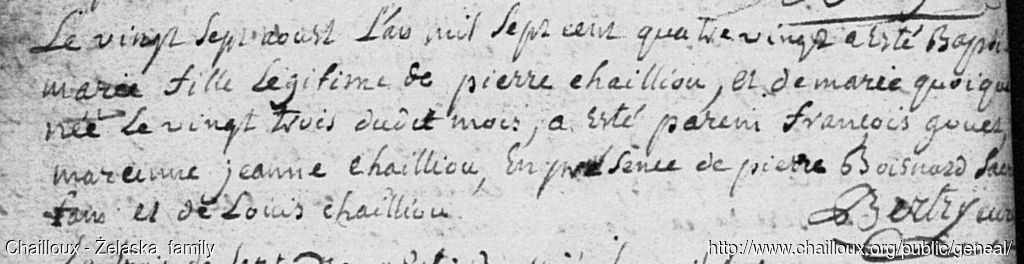 Le vingt Sept aoust L'an mil Sept cent quatre vingt a Esté Bapti
marie fille Legitime de pierre chailliou, et de marie quoique
née Le vingt trois dudit mois, a Esté parein francois gouet,
mareinne jeanne chailliou, En presence de pierre Boisnard Sacri
tain et de Louis chailliou
Bertry curé
Chailloux - Żelaska family
http://www.chailloux.org/public/geneal/